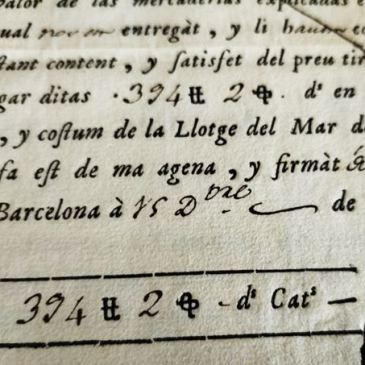 valor de las mercaderias explicadas e
ual no entregàt, y li
stant content, y satisfet del preu tir
gar ditas .394 ₶ 2 . d.ˢ en
, y costum de la Llotge del Mar d
fa est de ma agena, y firmàt
Barcelona à 15 Dbre de
394 ₶ 2 dˢ Catˢ